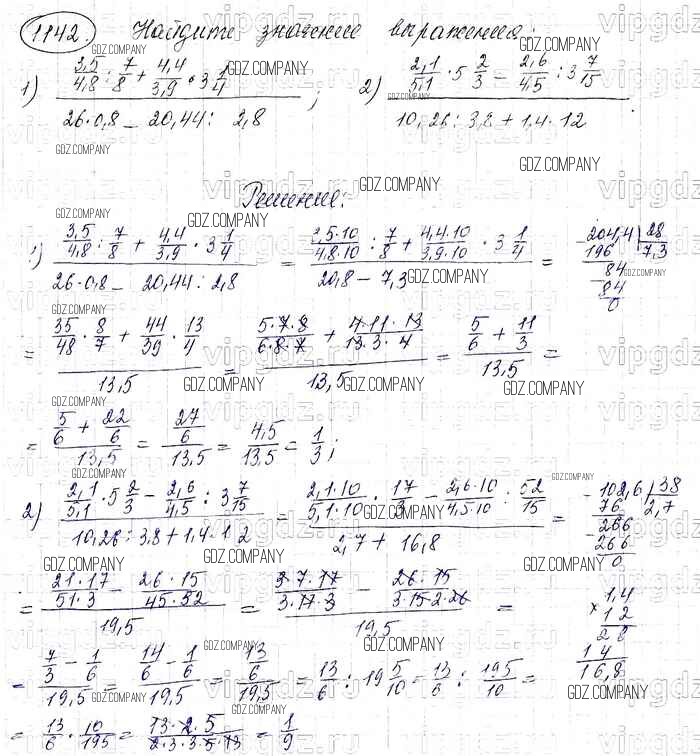 1142. Найдите значение выражения:
1) (3,5/4,8 : 7/8 + 4,4/3,9 · 3 1/4) / (26·0,8 − 20,44 : 2,8) ; 2) (2,1/5,1 · 5 2/3 − 2,6/4,5 : 3 7/15) / (10,26 : 3,8 + 1,4 · 12) .
Решение:
1) (3,5/4,8 : 7/8 + 4,4/3,9 · 3 1/4) / (26·0,8 − 20,44 : 2,8) = (3,5·10/4,8·10 : 7/8 + 4,4·10/3,9·10 · 3 1/4) / (20,8 − 7,3) =
− 204,4 | 28
196 7,3
84
− 84
0
= (35/48 · 8/7 + 44/39 · 13/4) / 13,5 = (5·7·8/6·8·7 + 4·11·13/13·3·4) / 13,5 = (5/6 + 11/3) / 13,5 =
= (5/6 + 22/6) / 13,5 = (27/6) / 13,5 = 4,5/13,5 = 1/3;
2) (2,1/5,1 · 5 2/3 − 2,6/4,5 : 3 7/15) / (10,26 : 3,8 + 1,4·12) = (2,1·10/5,1·10 · 17/3 − 2,6·10/4,5·10 : 52/15) / (2,7 + 16,8) =
− 102,6 | 38
76 2,7
266
− 266
0
= (21·17/51·3 − 26·15/45·52) / 19,5 = (3·7·17/3·17·3 − 26·15/3·15·2·26) / 19,5 =
× 1,4
12
28
14
16,8
= (7/3 − 1/6) / 19,5 = (14/6 − 1/6) / 19,5 = (13/6) / 19,5 = 13/6 : 19 5/10 = 13/6 : 195/10 =
= 13/6 · 10/195 = 13·2·5/2·3·3·5·13 = 1/9
GDZ.COMPANY
vipgdz.ru